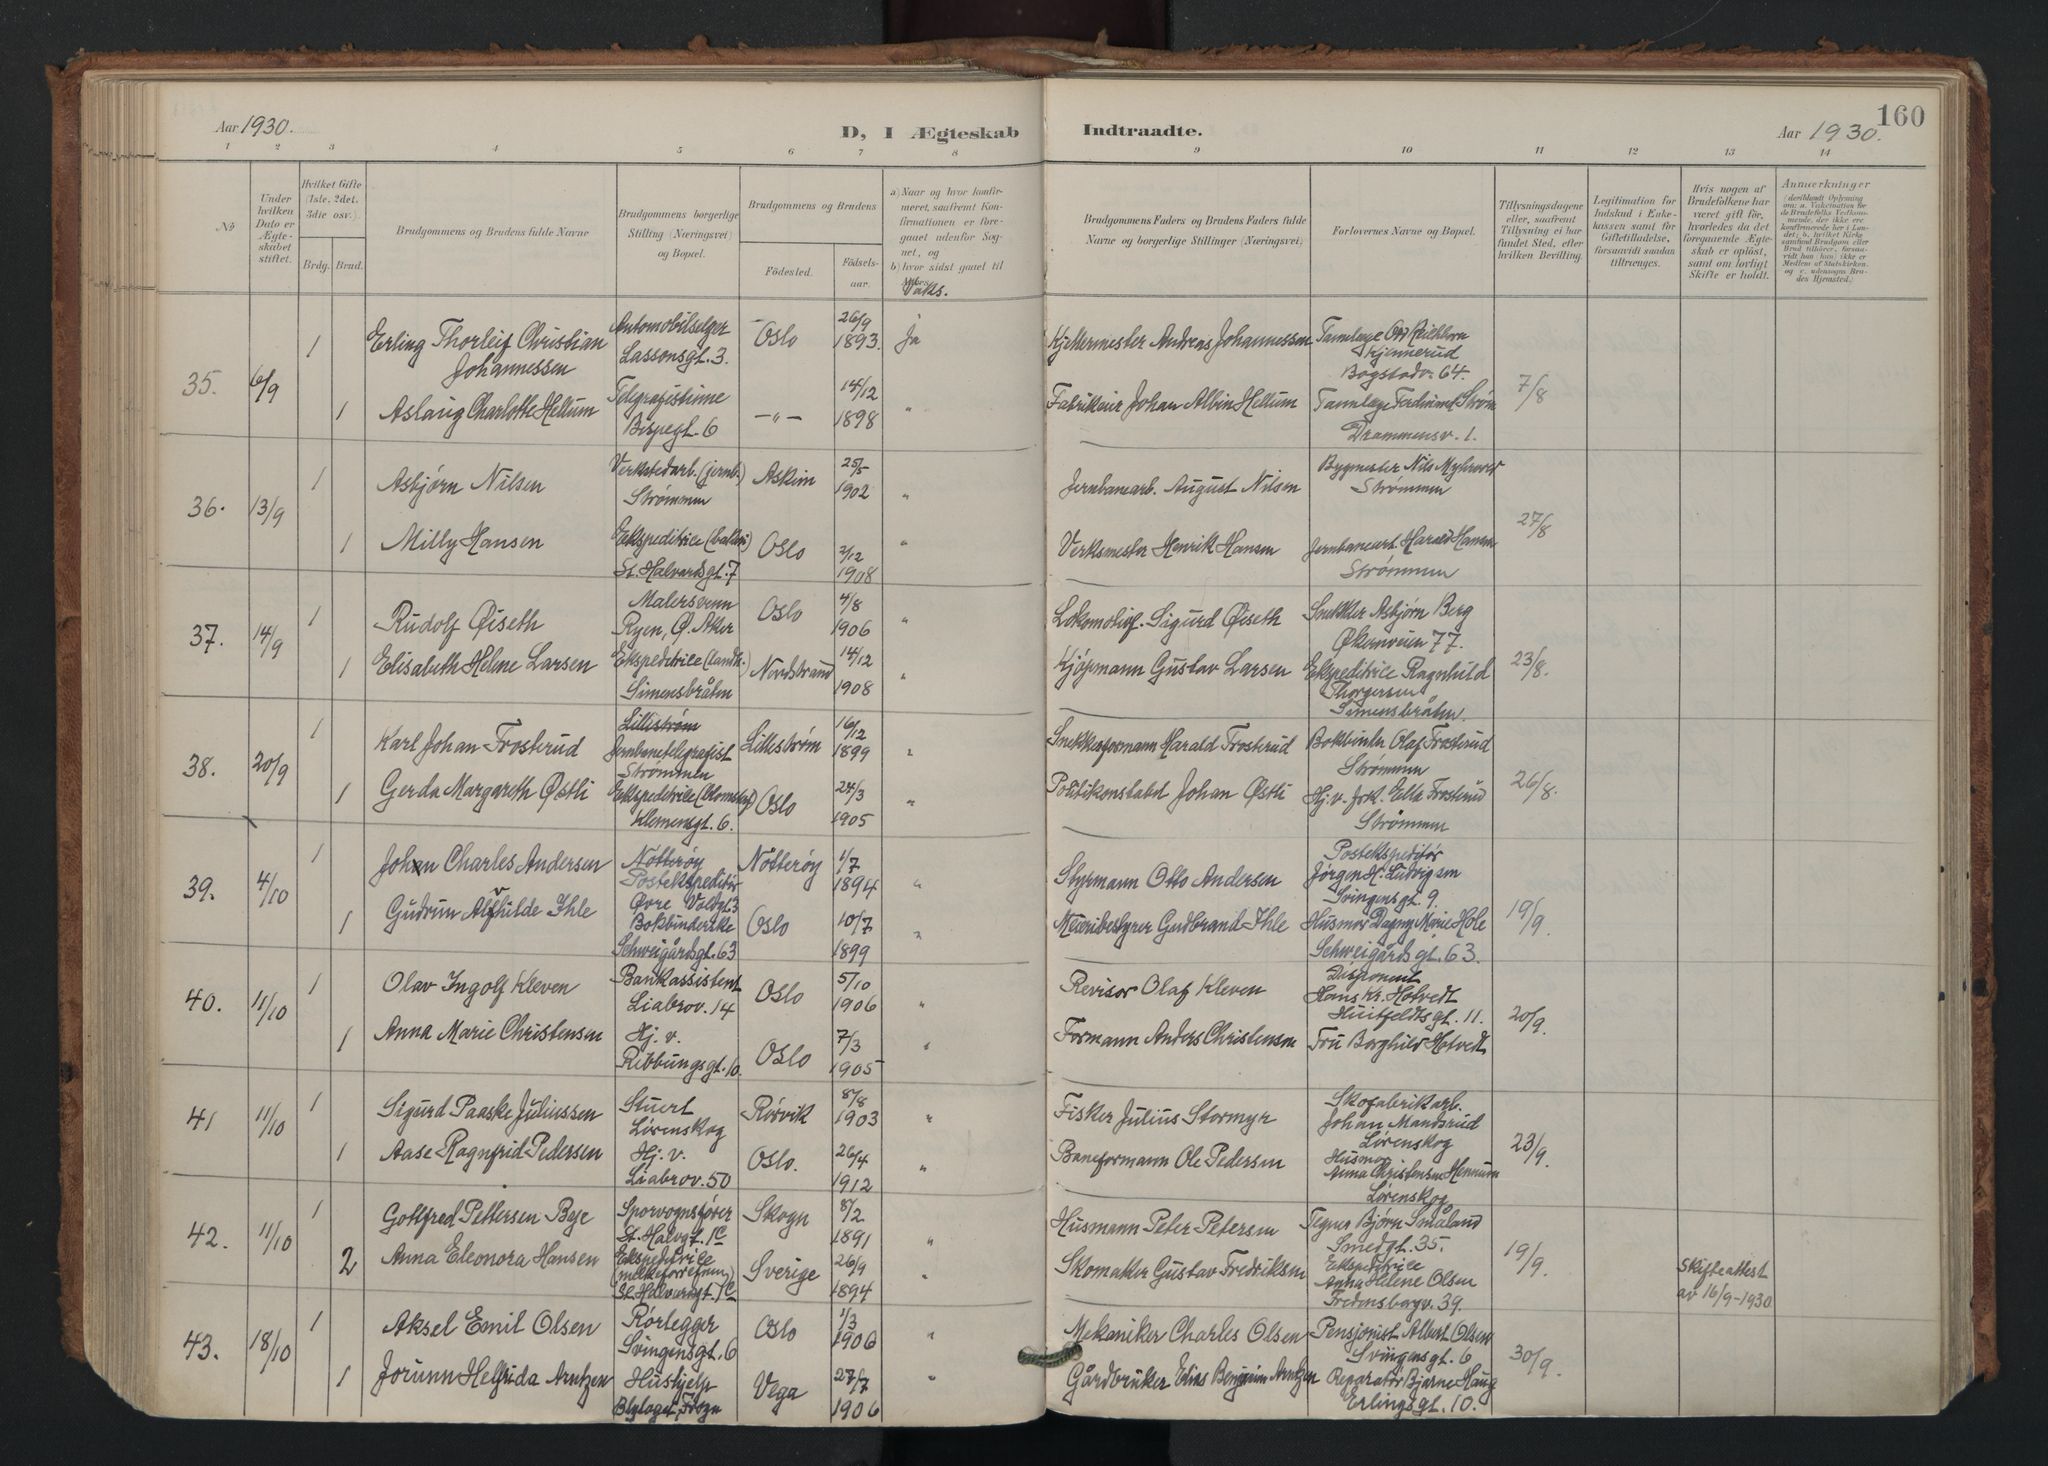 160
Aar 1930.
D, I Ægteskab Indtraadte.
Aar 1930.
1 2 3 4 5 6 7 8 9 10 11 12 13 14
No
Under hvilken Dato er Ægteskabet stiftet.
Hvilket Gifte (1ste, 2det, 3die osv.).
Brdg. Brud.
Brudgommens og Brudens fulde Navne
Brudgommens borgerlige Stilling (Næringsvei) og Bopæl.
Brudgommens og Brudens
Fødested.
Fødselsaar.
a) Naar og hvor konfirmeret, saafremt Konfirmationen er foregaaet udenfor Sognet, og
b) hvor sidst gaaet til
Vaks.
Brudgommens Faders og Brudens Faders fulde Navne og borgerlige Stillinger (Næringsvei).
Forlovernes Navne og Bopæl.
Tillysningsdagene eller, saafremt Tillysning ei har fundet Sted, efter hvilken Bevilling.
Legitimation for Indskud i Enkekassen samt for Giftetilladelse, forsaavidt saadan tiltrænges.
Hvis nogen af Brudefolkene har været gift før, hvorledes da det foregaaende Ægteskab er opløst, samt om lovligt Skifte er holdt.
Anmærkninger
35. 6/9
1 Erling Thorleif Christian Johannessen
Automobilselger
Lassonsgt. 3.
Oslo
26/9 1893.
Ja
Kjellermester Andreas Johannessen
Kjennerud
Bogstadv. 64.
1 Aslaug Charlotte Hellum
Telegrafistinne
Bispegt. 6
—"—
14/12 1898
"
Johan Albin Hellum
Tannlæge Ferdinand Strøm
Drammensv. 1.
7/8
36. 13/9
1 Asbjørn Nilsen
Verkstedarb. (jernb.)
Strømmen
Askim
25/5 1902
"
Jernbanearb. August Nilsen
Bygmester Nils
Strømmen
1 Milly Hansen
Ekspeditrice
St. Halvardsgt. 7
Oslo
2/12 1908
"
Verksmester Henrik Hansen
Jernbanearb. Harald Hansen
Strømmen
27/8
37. 14/9
1 Rudolf Øiseth
Malersvenn
Ryen, Ø. Aker
Oslo
4/8 1906
"
Lokomotivf. Sigurd Øiseth
Snekker Asbjørn Berg
Økernveien 77.
1 Elisabeth Helene Larsen
Ekspeditrice (landh.)
Simensbråten
Nordstrand
14/12 1908
"
Kjøpmann Gustav Larsen
Ekspeditrice Ragnhild
Thorgersen
Simensbråten.
23/8.
38. 20/9
1 Karl Johan Frosterud
Lillestrøm
Jernbanetelegrafist
Strømmen
Lillestrøm
16/12 1899
"
Snekkerformann Harald Frosterud
Bokbinder Olaf Frosterud
Strømmen
1 Gerda Margareth Østli
Ekspeditrice
Klemensgt. 6.
Oslo
24/3 1905
"
Politikonstabel Johan Østli
Hj. v. Frk. Ella Frosterud
Strømmen
26/8.
39. 4/10
1 Johan Charles Andersen
Nøtterøy
Postekspeditør
Øvre Voldgt. 3
Nøtterøy
1/7 1894
"
Styrmann Otto Andersen
Postekspeditør
Jørgen H. Ludvigsen
Svingensgt. 9.
1 Gudrun Alfhilde Ihle
Bokbinderske
Schweigårdsgt. 63
Oslo
10/7 1899
"
Meieribestyrer Gudbrand Ihle
Husmor Dagny Marie Hole
Schweigårdsgt. 63.
19/9.
40. 11/10
1 Olav Ingolf Kleven
Bankassistent
Liabrov. 14
Oslo
5/10 1906
"
Revisor Olaf Kleven
Disponent
Hans Kr. Hotvedt
Huitfeldtsgt. 11.
1 Anna Marie Christensen
Hj. v.
Ribbungsgt. 10.
Oslo
7/3 1905
"
Formann Anders Christensen
Fru Borghild Hotvedt
20/9.
41 11/10
1 Sigurd Paaske Juliussen
Stuert
Lørenskog
Rørvik
8/8 1903
"
Fisker Julius Stormyr
Skofabrikarb.
Johan Mandsrud
Lørenskog
1 Aase Ragnfrid Pedersen
Hj. v.
Liabrov. 50
Oslo.
26/4 1912
"
Baneformann Ole Pedersen
Husmor
Anna Christensen Hennum
Lørenskog
23/9.
42. 11/10
1 Gottfred Pettersen Beje
Sporvognsfører
St. Halvgt. 1C
Skogn
8/2 1891
"
Husmann Peter Petersen
Tegner Bjørn Småland
Smedgt. 35.
2 Anna Eleonora Hansen
Ekspeditrice
(melkeforretnin.)
St. Halvardsgt. 1C
Sverige
26/9 1894
"
Skomaker Gustav Fredriksen
Ekspeditrice
Anna Helene Olsen
Fredensborgv. 39.
19/9.
Skifteattest
av 16/9-1930
43. 18/10
1 Aksel Emil Olsen
Rørlegger
Svingensgt. 6
Oslo
1/3 1906
"
Mekaniker Charles Olsen
Pensjonist Albert Olsen
Svingensgt. 6
1 Jorunn Helfrida Arntzen
Hushjelp
Frogn
Vega
27/7 1906
"
Gårdbruker Edias Benjamin Arntzen
Reparatør Bjarne Haug
Erlingsgt. 10.
30/9.